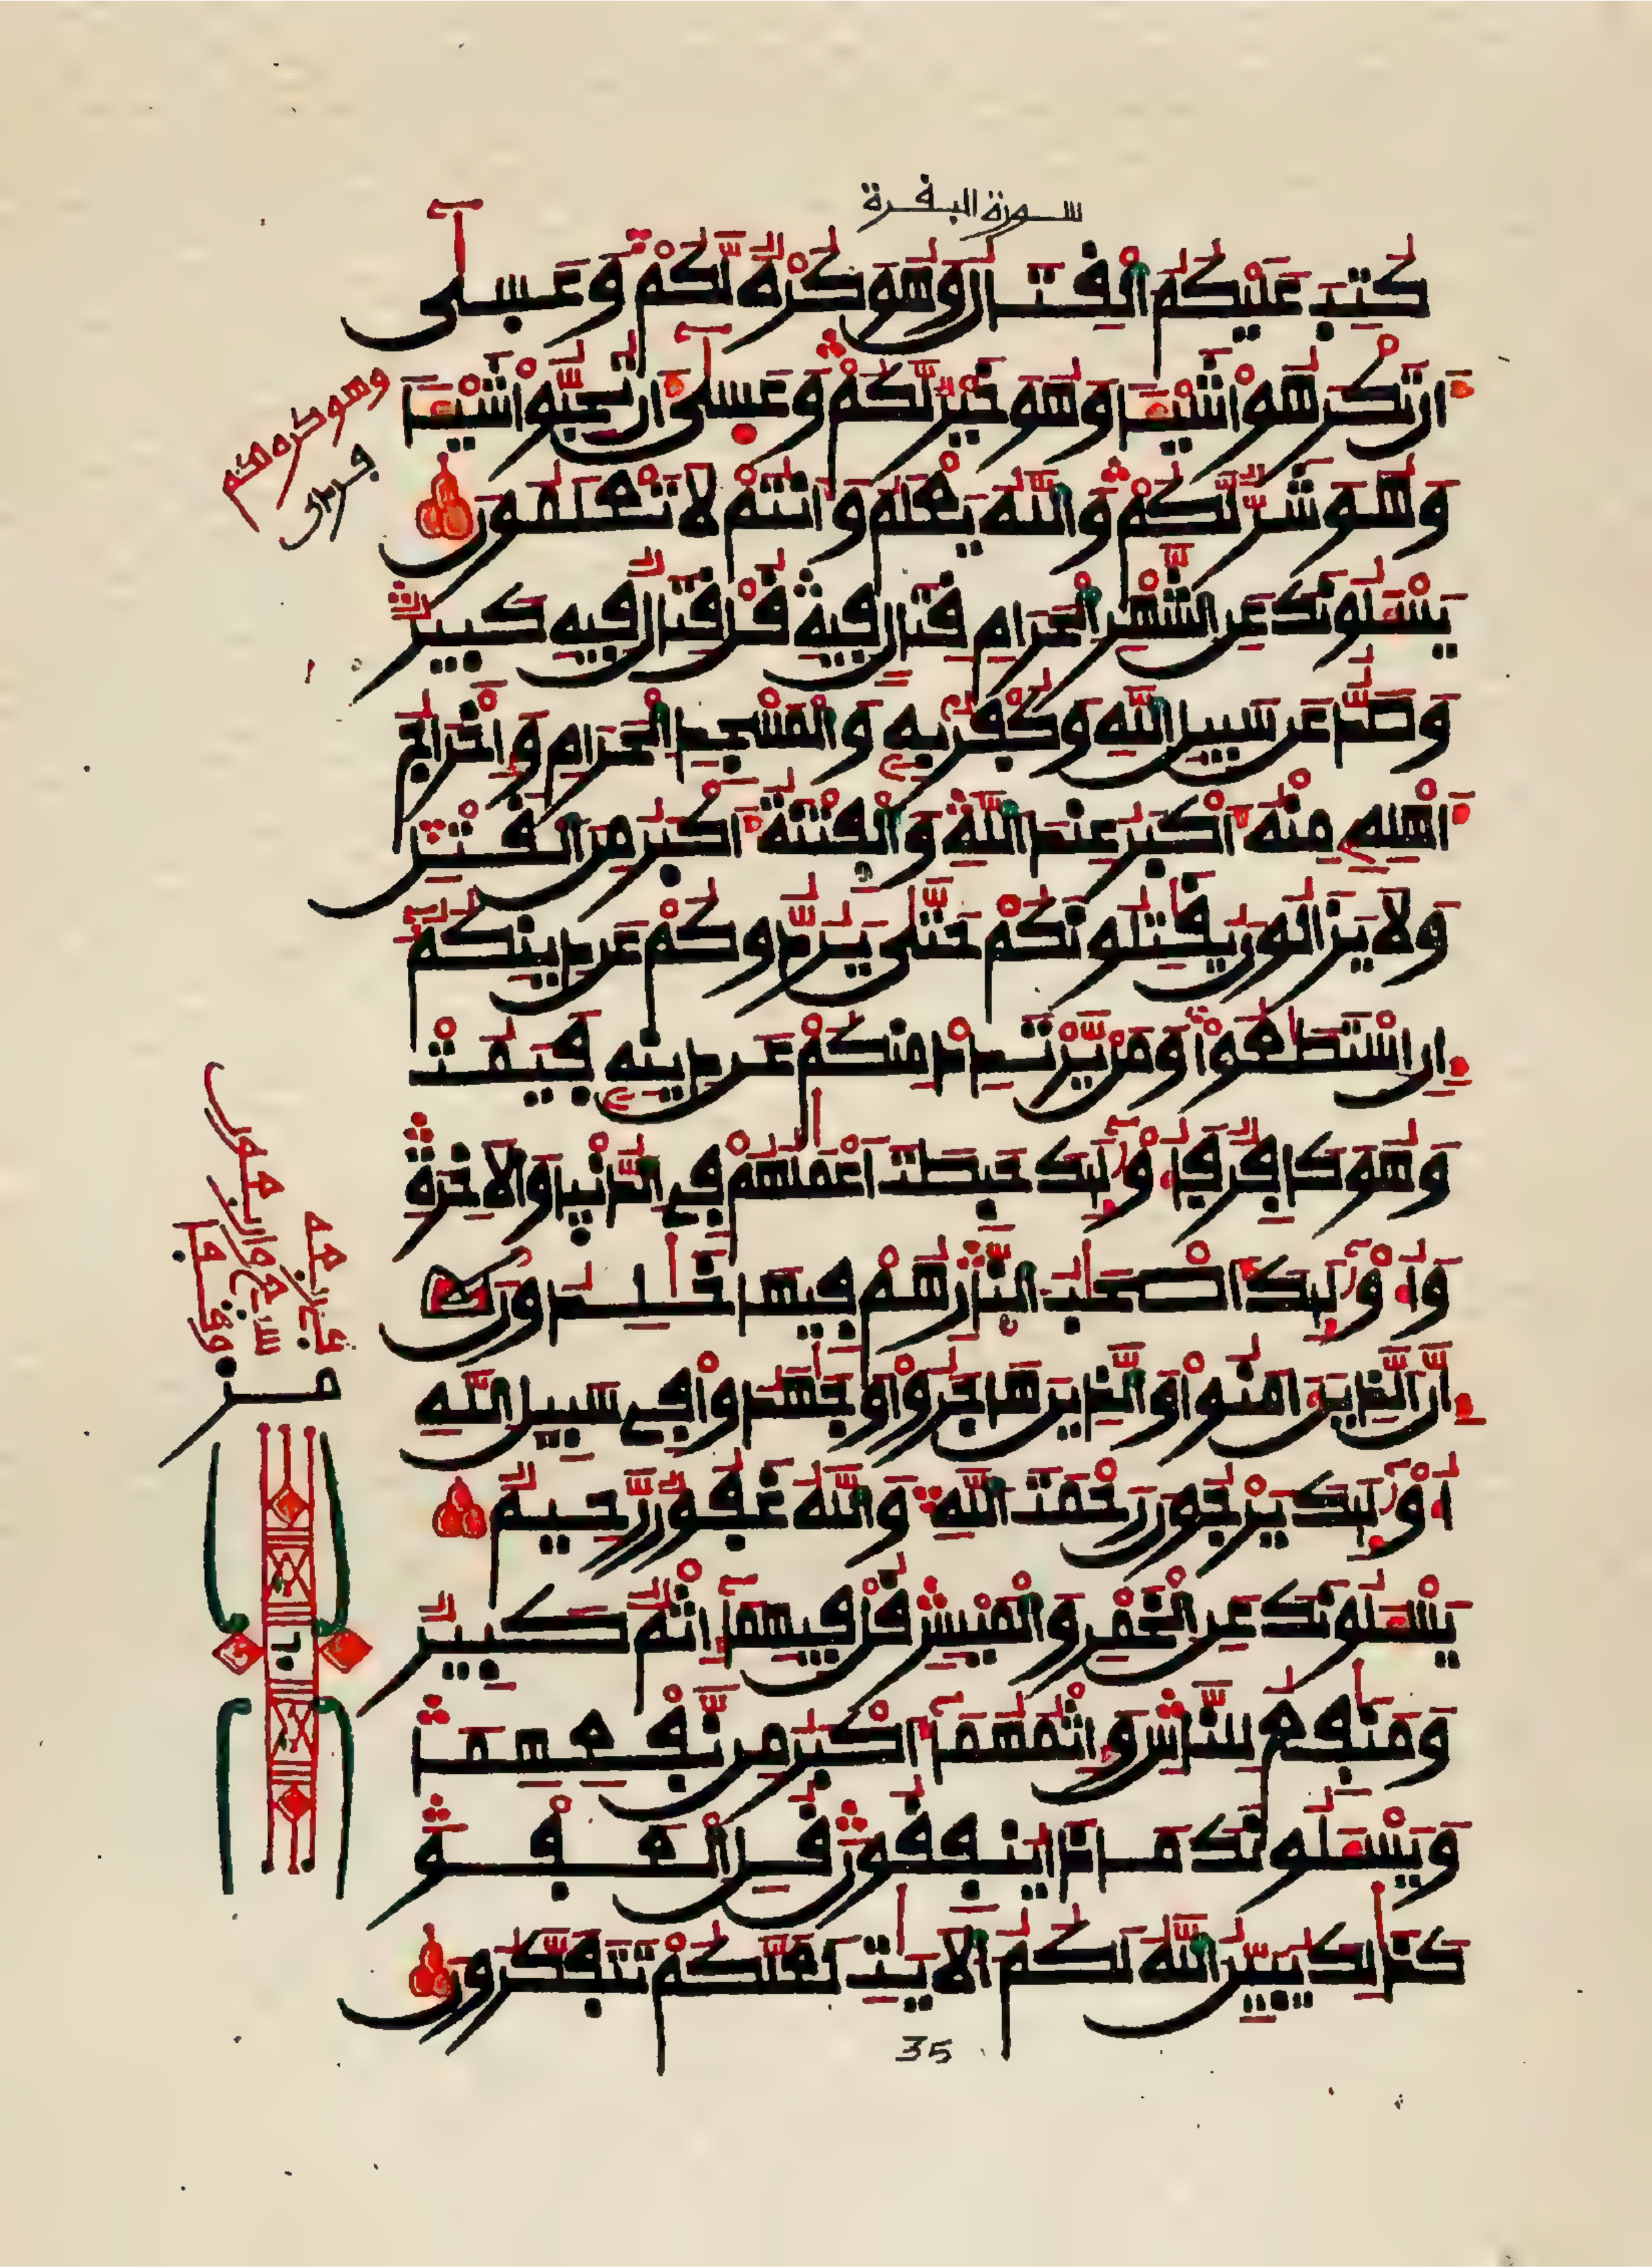 سورة البقرة
كُتِبَ عَلَيْكُمُ الْقِتَالُ وَهُوَ كُرْهٌ لَّكُمْ وَعَسَىٰ
أَن تَكْرَهُوا شَيْئًا وَهُوَ خَيْرٌ لَّكُمْ وَعَسَىٰ أَن تُحِبُّوا شَيْئًا
وَهُوَ شَرٌّ لَّكُمْ وَاللَّهُ يَعْلَمُ وَأَنتُمْ لَا تَعْلَمُونَ
يَسْـَٔلُونَكَ عَنِ الشَّهْرِ الْحَرَامِ قِتَالٍ فِيهِ قُلْ قِتَالٌ فِيهِ كَبِيرٌ
وَصَدٌّ عَن سَبِيلِ اللَّهِ وَكُفْرٌ بِهِ وَالْمَسْجِدِ الْحَرَامِ وَإِخْرَاجُ
أَهْلِهِ مِنْهُ أَكْبَرُ عِندَ اللَّهِ وَالْفِتْنَةُ أَكْبَرُ مِنَ الْقَتْلِ
وَلَا يَزَالُونَ يُقَٰتِلُونَكُمْ حَتَّىٰ يَرُدُّوكُمْ عَن دِينِكُمْ
إِنِ اسْتَطَٰعُوا وَمَن يَرْتَدِدْ مِنكُمْ عَن دِينِهِ فَيَمُتْ
وَهُوَ كَافِرٌ فَأُوْلَٰئِكَ حَبِطَتْ أَعْمَٰلُهُمْ فِي الدُّنْيَا وَالْأَخِرَةِ
وَأُوْلَٰئِكَ أَصْحَٰبُ النَّارِ هُمْ فِيهَا خَٰلِدُونَ
إِنَّ الَّذِينَ ءَامَنُوا وَالَّذِينَ هَاجَرُوا وَجَٰهَدُوا فِي سَبِيلِ اللَّهِ
أُوْلَٰئِكَ يَرْجُونَ رَحْمَتَ اللَّهِ وَاللَّهُ غَفُورٌ رَّحِيمٌ
يَسْـَٔلُونَكَ عَنِ الْخَمْرِ وَالْمَيْسِرِ قُلْ فِيهِمَا إِثْمٌ كَبِيرٌ
وَمَنَٰفِعُ لِلنَّاسِ وَإِثْمُهُمَا أَكْبَرُ مِن نَّفْعِهِمَا
وَيَسْـَٔلُونَكَ مَاذَا يُنفِقُونَ قُلِ الْعَفْوَ
كَذَٰلِكَ يُبَيِّنُ اللَّهُ لَكُمُ الْأَيَٰتِ لَعَلَّكُمْ تَتَفَكَّرُونَ
35
وهو كره لكم